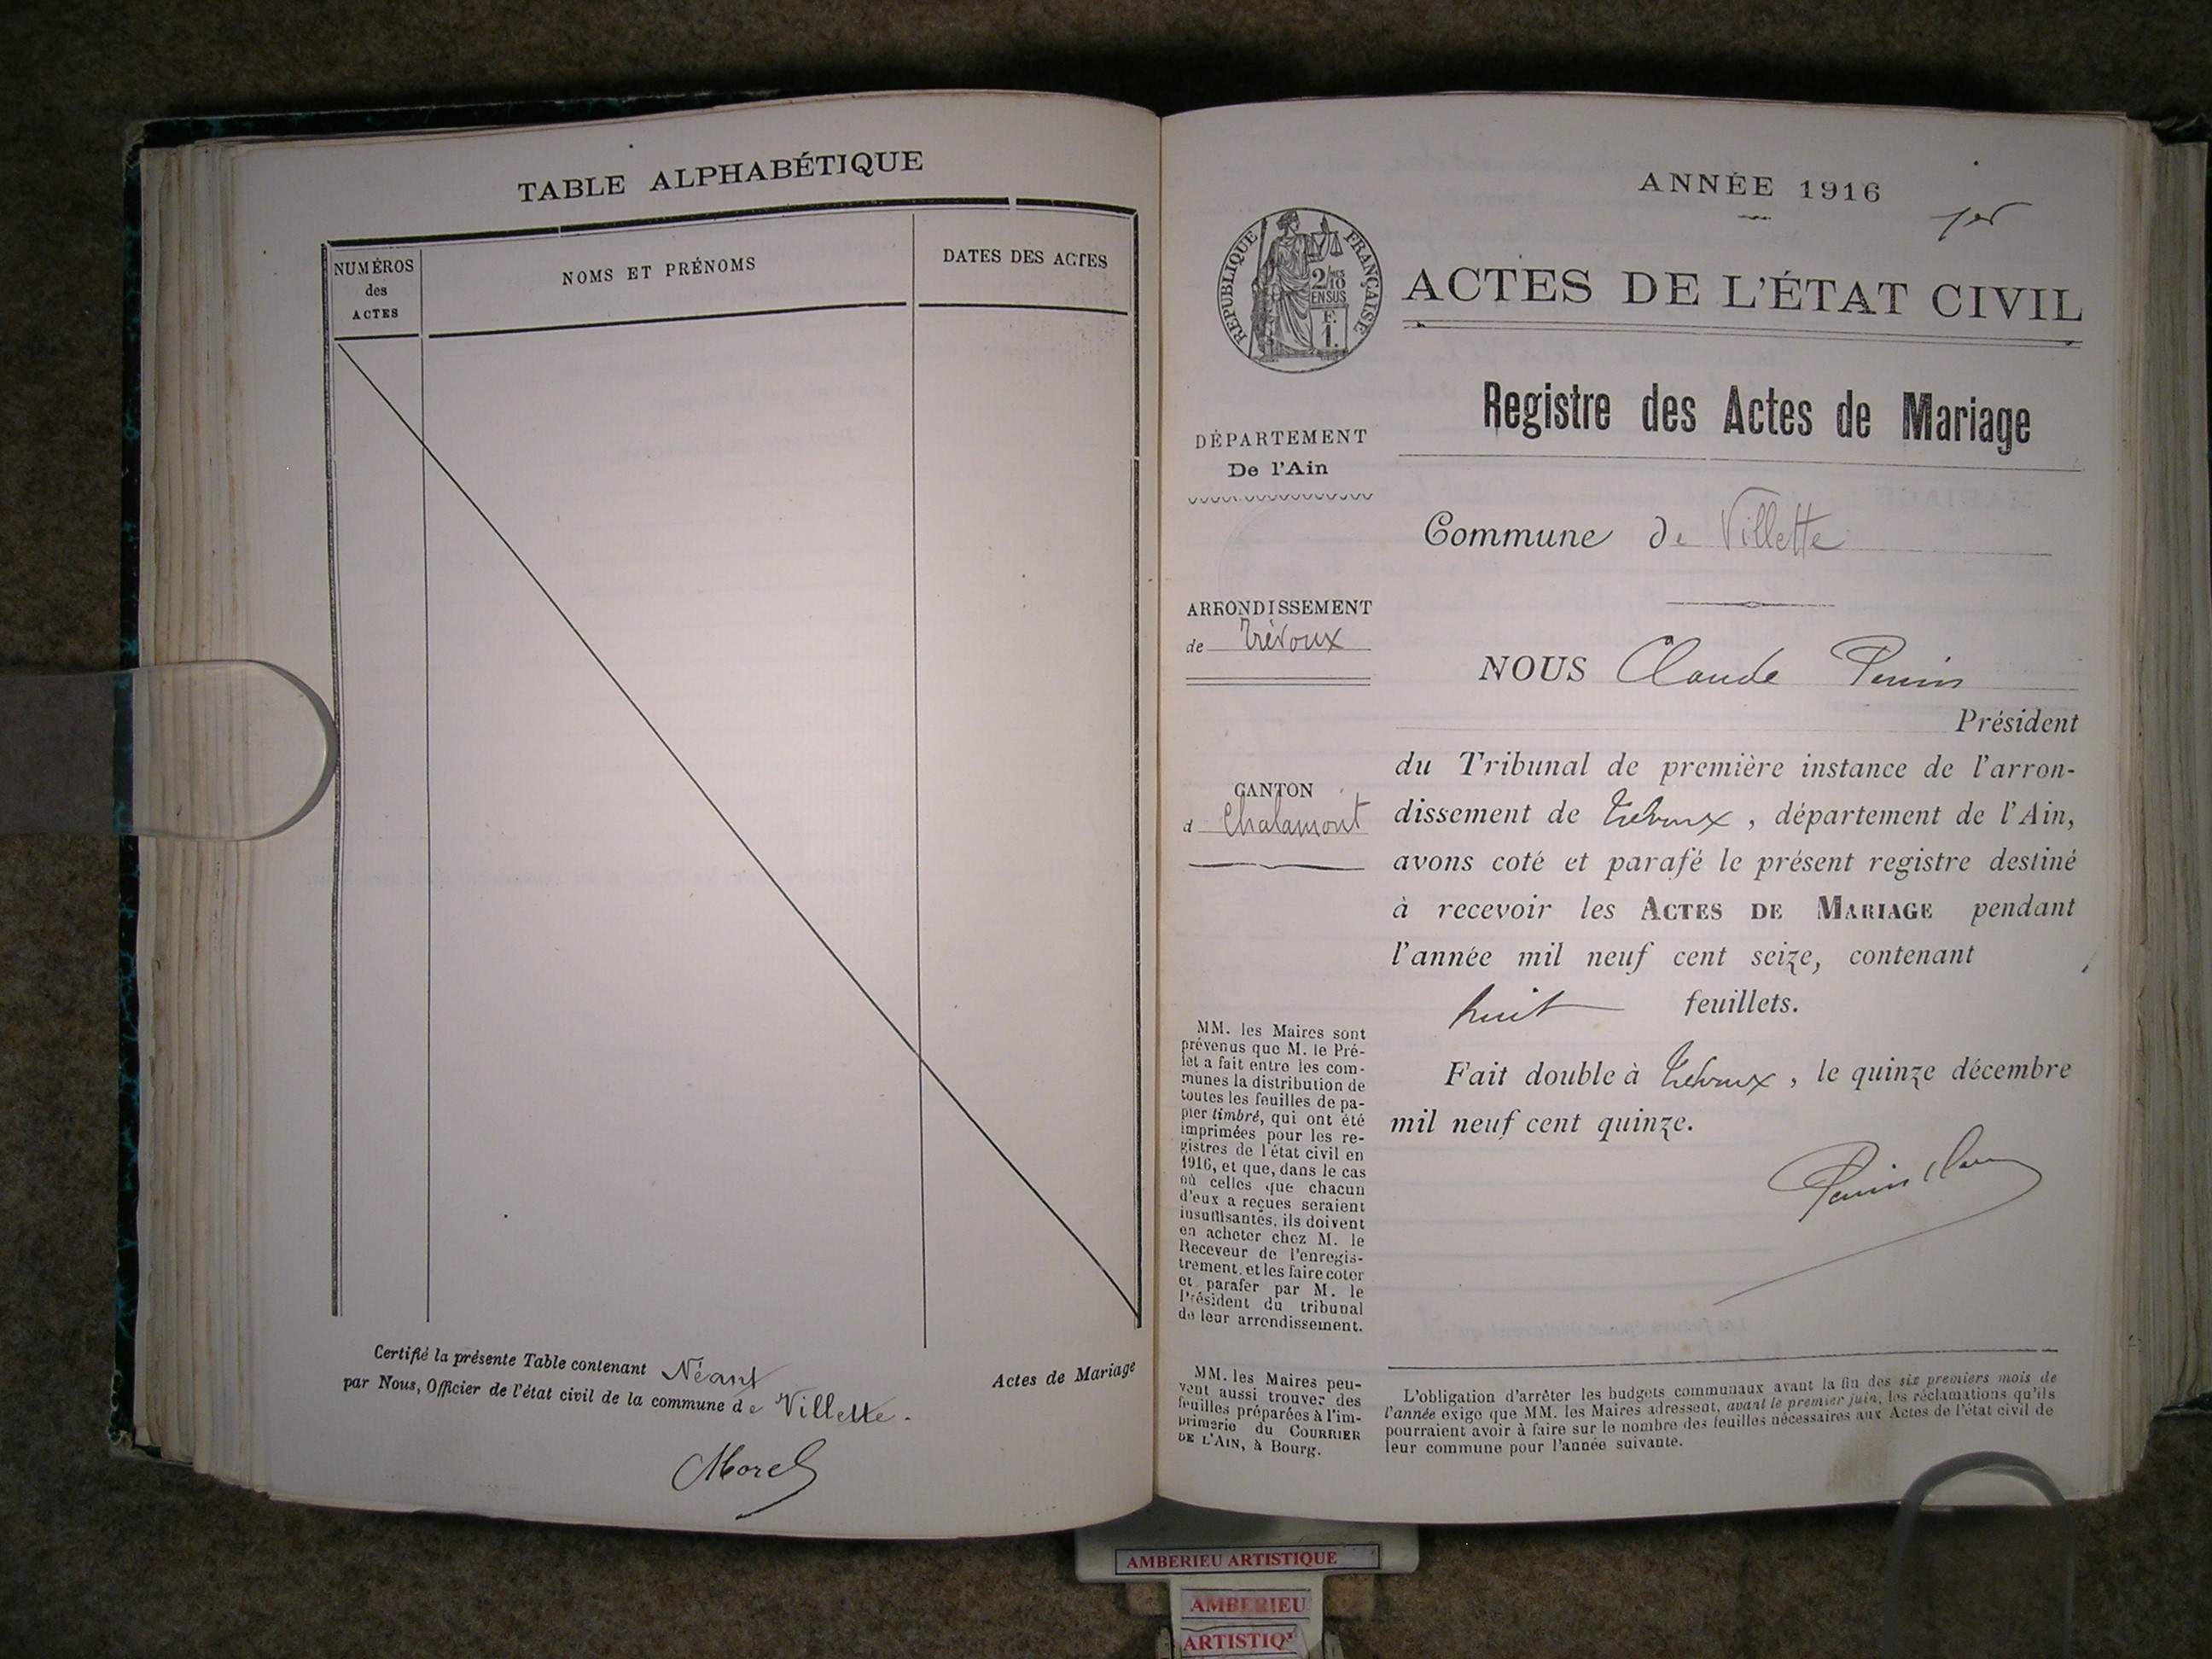 TABLE ALPHABÉTIQUE
NUMÉROS
des
ACTES
NOMS ET PRÉNOMS
DATES DES ACTES
Certifié la présente Table contenant Néant Actes de Mariage
par Nous, Officier de l'état civil de la commune de Villette.
Morel
ANNÉE 1916
1er
RÉPUBLIQUE FRANÇAISE
2/10
EN SUS
F.
1.
ACTES DE L'ÉTAT CIVIL
Registre des Actes de Mariage
DÉPARTEMENT
De l'Ain
Commune de Villette
ARRONDISSEMENT
de Trévoux
CANTON
d Chalamont
NOUS Claude
Président
du Tribunal de première instance de l'arron-
dissement de Trévoux, département de l'Ain,
avons coté et parafé le présent registre destiné
à recevoir les ACTES DE MARIAGE pendant
l'année mil neuf cent seize, contenant
huit feuillets.
Fait double à Trévoux, le quinze décembre
mil neuf cent quinze.
MM. les Maires sont
prévenus que M. le Pré-
fet a fait entre les com-
munes la distribution de
toutes les feuilles de pa-
pier timbré, qui ont été
imprimées pour les re-
gistres de l'état civil en
1916, et que, dans le cas
où celles que chacun
d'eux a reçues seraient
insuffisantes, ils doivent
en acheter chez M. le
Receveur de l'enregis-
trement, et les faire coter
et parafer par M. le
Président du tribunal
de leur arrondissement.
MM. les Maires peu-
vent aussi trouver des
feuilles préparées à l'im-
primerie du COURRIER
DE L'AIN, à Bourg.
L'obligation d'arrêter les budgets communaux avant la fin des six premiers mois de
l'année exige que MM. les Maires adressent, avant le premier juin, les réclamations qu'ils
pourraient avoir à faire sur le nombre des feuilles nécessaires aux Actes de l'état civil de
leur commune pour l'année suivante.
AMBERIEU ARTISTIQUE
AMBERIEU
ARTISTIQ